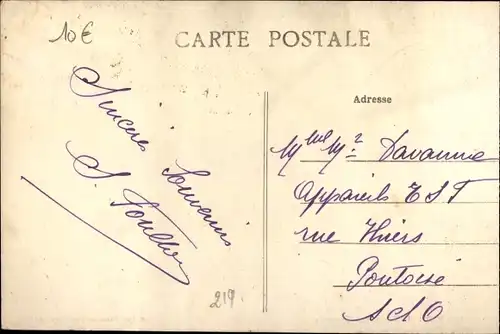 10€
CARTE POSTALE
Sincères
Souvenirs
Adresse
Mme Mr Davanne
Appareils E S T
rue Thiers
Pontoise
S & O
219